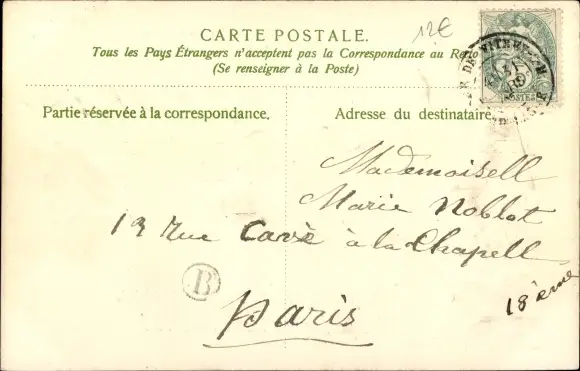 CARTE POSTALE.
12€
Tous les Pays Étrangers n'acceptent pas la Correspondance au
(Se renseigner à la Poste)
Partie réservée à la correspondance.
Adresse du destinataire
Mademoisell
Marie Noblot
13 Rue Cavè à la Chapell
18ème
Paris
B
POSTES